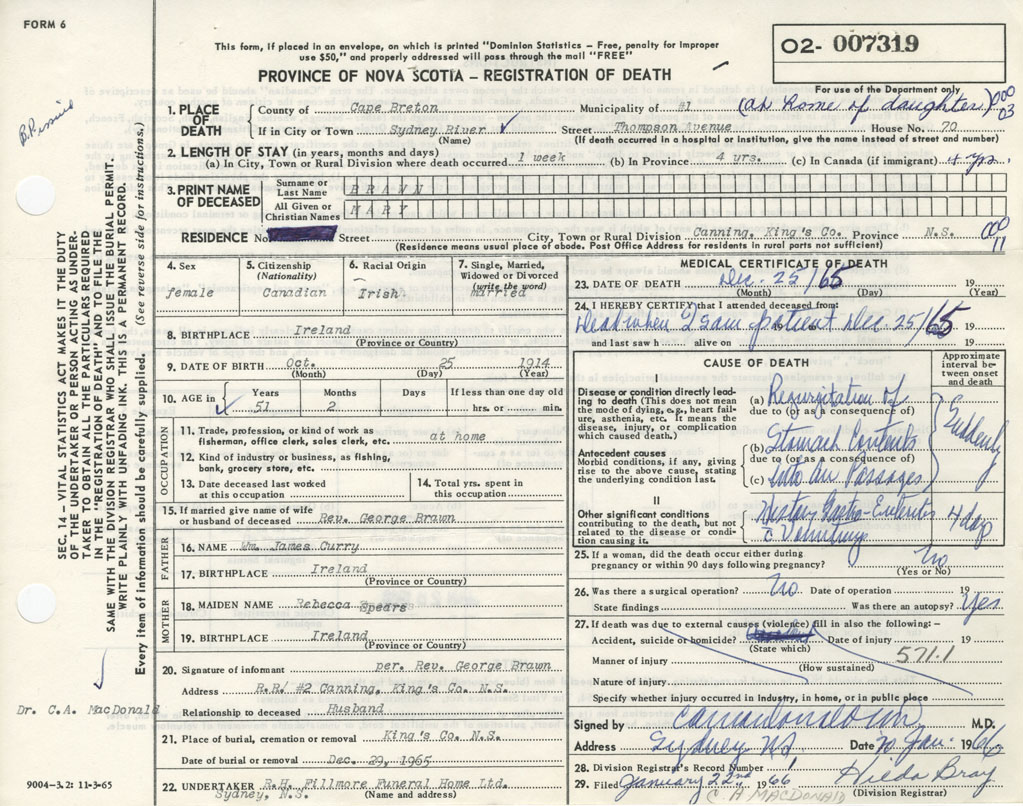 FORM 6
This form, if placed in an envelope, on which is printed "Dominion Statistics – Free, penalty for improper
use $50," and properly addressed will pass through the mail "FREE"
02- 007319
PROVINCE OF NOVA SCOTIA – REGISTRATION OF DEATH
For use of the Department only
1. PLACE OF DEATH County of Cape Breton Municipality of #1 (at home of daughter)
If in City or Town Sydney River ✓ Street Thompson Avenue House No. 70
(Name) (If death occurred in a hospital or institution, give the name instead of street and number)
2. LENGTH OF STAY (in years, months and days)
(a) In City, Town or Rural Division where death occurred 1 week (b) In Province 4 yrs. (c) In Canada (if immigrant) 4 yrs.
3. PRINT NAME OF DECEASED
Surname or Last Name BRAWN
All Given or Christian Names MARY
RESIDENCE No. Street City, Town or Rural Division Canning, King's Co. Province N.S.
(Residence means usual place of abode. Post Office Address for residents in rural parts not sufficient)
000
11
SEC. 14 – VITAL STATISTICS ACT MAKES IT THE DUTY
OF THE UNDERTAKER OR PERSON ACTING AS UNDER-
TAKER TO OBTAIN ALL THE PARTICULARS REQUIRED
IN THE "REGISTRATION OF DEATH" AND TO FILE THE
SAME WITH THE DIVISION REGISTRAR WHO SHALL ISSUE THE BURIAL PERMIT
WRITE PLAINLY WITH UNFADING INK. THIS IS A PERMANENT RECORD.
Every item of information should be carefully supplied. (See reverse side for instructions.)
4. Sex
female
5. Citizenship
(Nationality)
Canadian
6. Racial Origin
Irish
7. Single, Married,
Widowed or Divorced
(write the word)
married
8. BIRTHPLACE Ireland
(Province or Country)
9. DATE OF BIRTH Oct. 25 1914
(Month) (Day) (Year)
10. AGE in Years Months Days If less than one day old
51 2 hrs. or min.
OCCUPATION
11. Trade, profession, or kind of work as
fisherman, office clerk, sales clerk, etc. at home
12. Kind of industry or business, as fishing,
bank, grocery store, etc.
13. Date deceased last worked
at this occupation
14. Total yrs. spent in
this occupation
15. If married give name of wife
or husband of deceased Rev. George Brawn
FATHER
16. NAME Wm. James Curry
17. BIRTHPLACE Ireland
(Province or Country)
MOTHER
18. MAIDEN NAME Rebecca Spears
19. BIRTHPLACE Ireland
(Province or Country)
20. Signature of informant per. Rev. George Brawn
Address R.R/ #2 Canning, King's Co. N.S.
Relationship to deceased Husband
Dr. C.A. MacDonald
21. Place of burial, cremation or removal King's Co. N.S.
Date of burial or removal Dec. 29, 1965
22. UNDERTAKER R.H. Fillmore Funeral Home Ltd.
Sydney, N.S. (Name and address)
9004-3.2: 11-3-65
MEDICAL CERTIFICATE OF DEATH
23. DATE OF DEATH Dec. 25/65 19
(Month) (Day) (Year)
24. I HEREBY CERTIFY that I attended deceased from:
Dead when I saw patient Dec 25/65 19
and last saw h alive on 19
CAUSE OF DEATH
Approximate
interval be-
tween onset
and death
I
Disease or condition directly lead-
ing to death (This does not mean
the mode of dying, e.g., heart fail-
ure, asthenia, etc. It means the
disease, injury, or complication
which caused death.)
Antecedent causes
Morbid conditions, if any, giving
rise to the above cause, stating
the underlying condition last.
(a) Regurgitation of
due to (or as a consequence of)
(b) Stomach Contents
due to (or as a consequence of)
(c) Into Air Passages
Suddenly
II
Other significant conditions
contributing to the death, but not
related to the disease or condi-
tion causing it.
History Gastro-Enteritis
c Vomiting
4 days
25. If a woman, did the death occur either during
pregnancy or within 90 days following pregnancy? No
(Yes or No)
26. Was there a surgical operation? No Date of operation 19
State findings Was there an autopsy? Yes
27. If death was due to external causes (violence) fill in also the following:–
Accident, suicide or homicide? Date of injury 19
(State which)
571.1
Manner of injury
(How sustained)
Nature of injury
Specify whether injury occurred in Industry, in home, or in public place
Signed by CA MacDonald MD M.D.
Address Sydney NS Date 20 Jan. 1966
28. Division Registrar's Record Number
29. Filed January 22nd 1966 Hilda Bray
C A MACDONALD (Division Registrar)